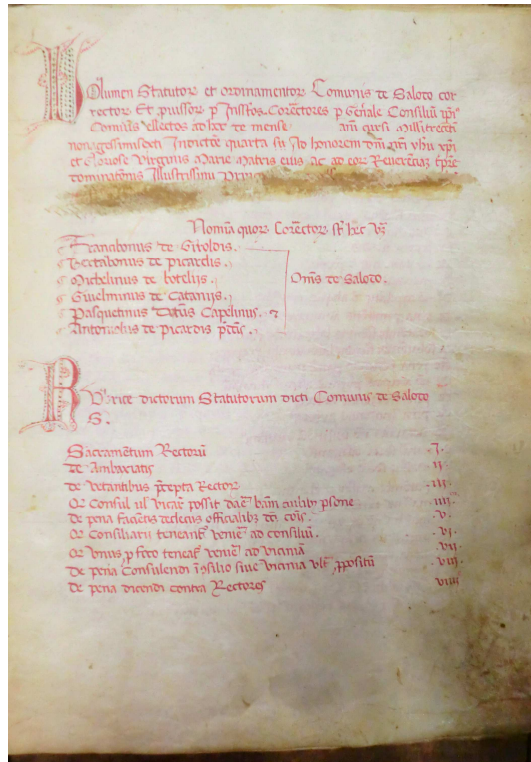 Volumen Statutor et ordinamentor Comunis de Salodo cor
rector Et puisor p Infros Corectores p Gnale Consiliū
Comūis ellectos ad hec de mense anī cursi Millitrecen
nonagessimisexti Indictōe quarta ad honorem dnī nrī yhu xpi
et Gloriose Virginis Marie Matris eius ac ad cor Reverēciaz
dominatōnis Illustrissimi
Nomīa quor Corector st hec vz
Franabonus de
Rectabonus de picardis
Michelinus de boteliis
Guielminus de Cataniis
Pasquetinus Dctus Capelinus
Antoniolus de Picardis pdcus
Omīs de Salodo.
Rubrice dictorum Statutorum dicti Comunis de Salodo
S.
Sacramētum Rectorū I.
de Ambaciatis II.
de vetantibus pcepta Rector III.
Qr Consul ul vicar possit dare bānū cuilibz psone IIII.
de pena faciens dedecus officialibz coīs. V.
Qr Consiliarii teneant venire ad consiliū. VI.
Qr Vnus p foco teneat venire ad viciniā VII.
De pena Consulendi ī consilio siue vicinia ult ppositū VIII.
de pena dicendi contra Rectores VIIII